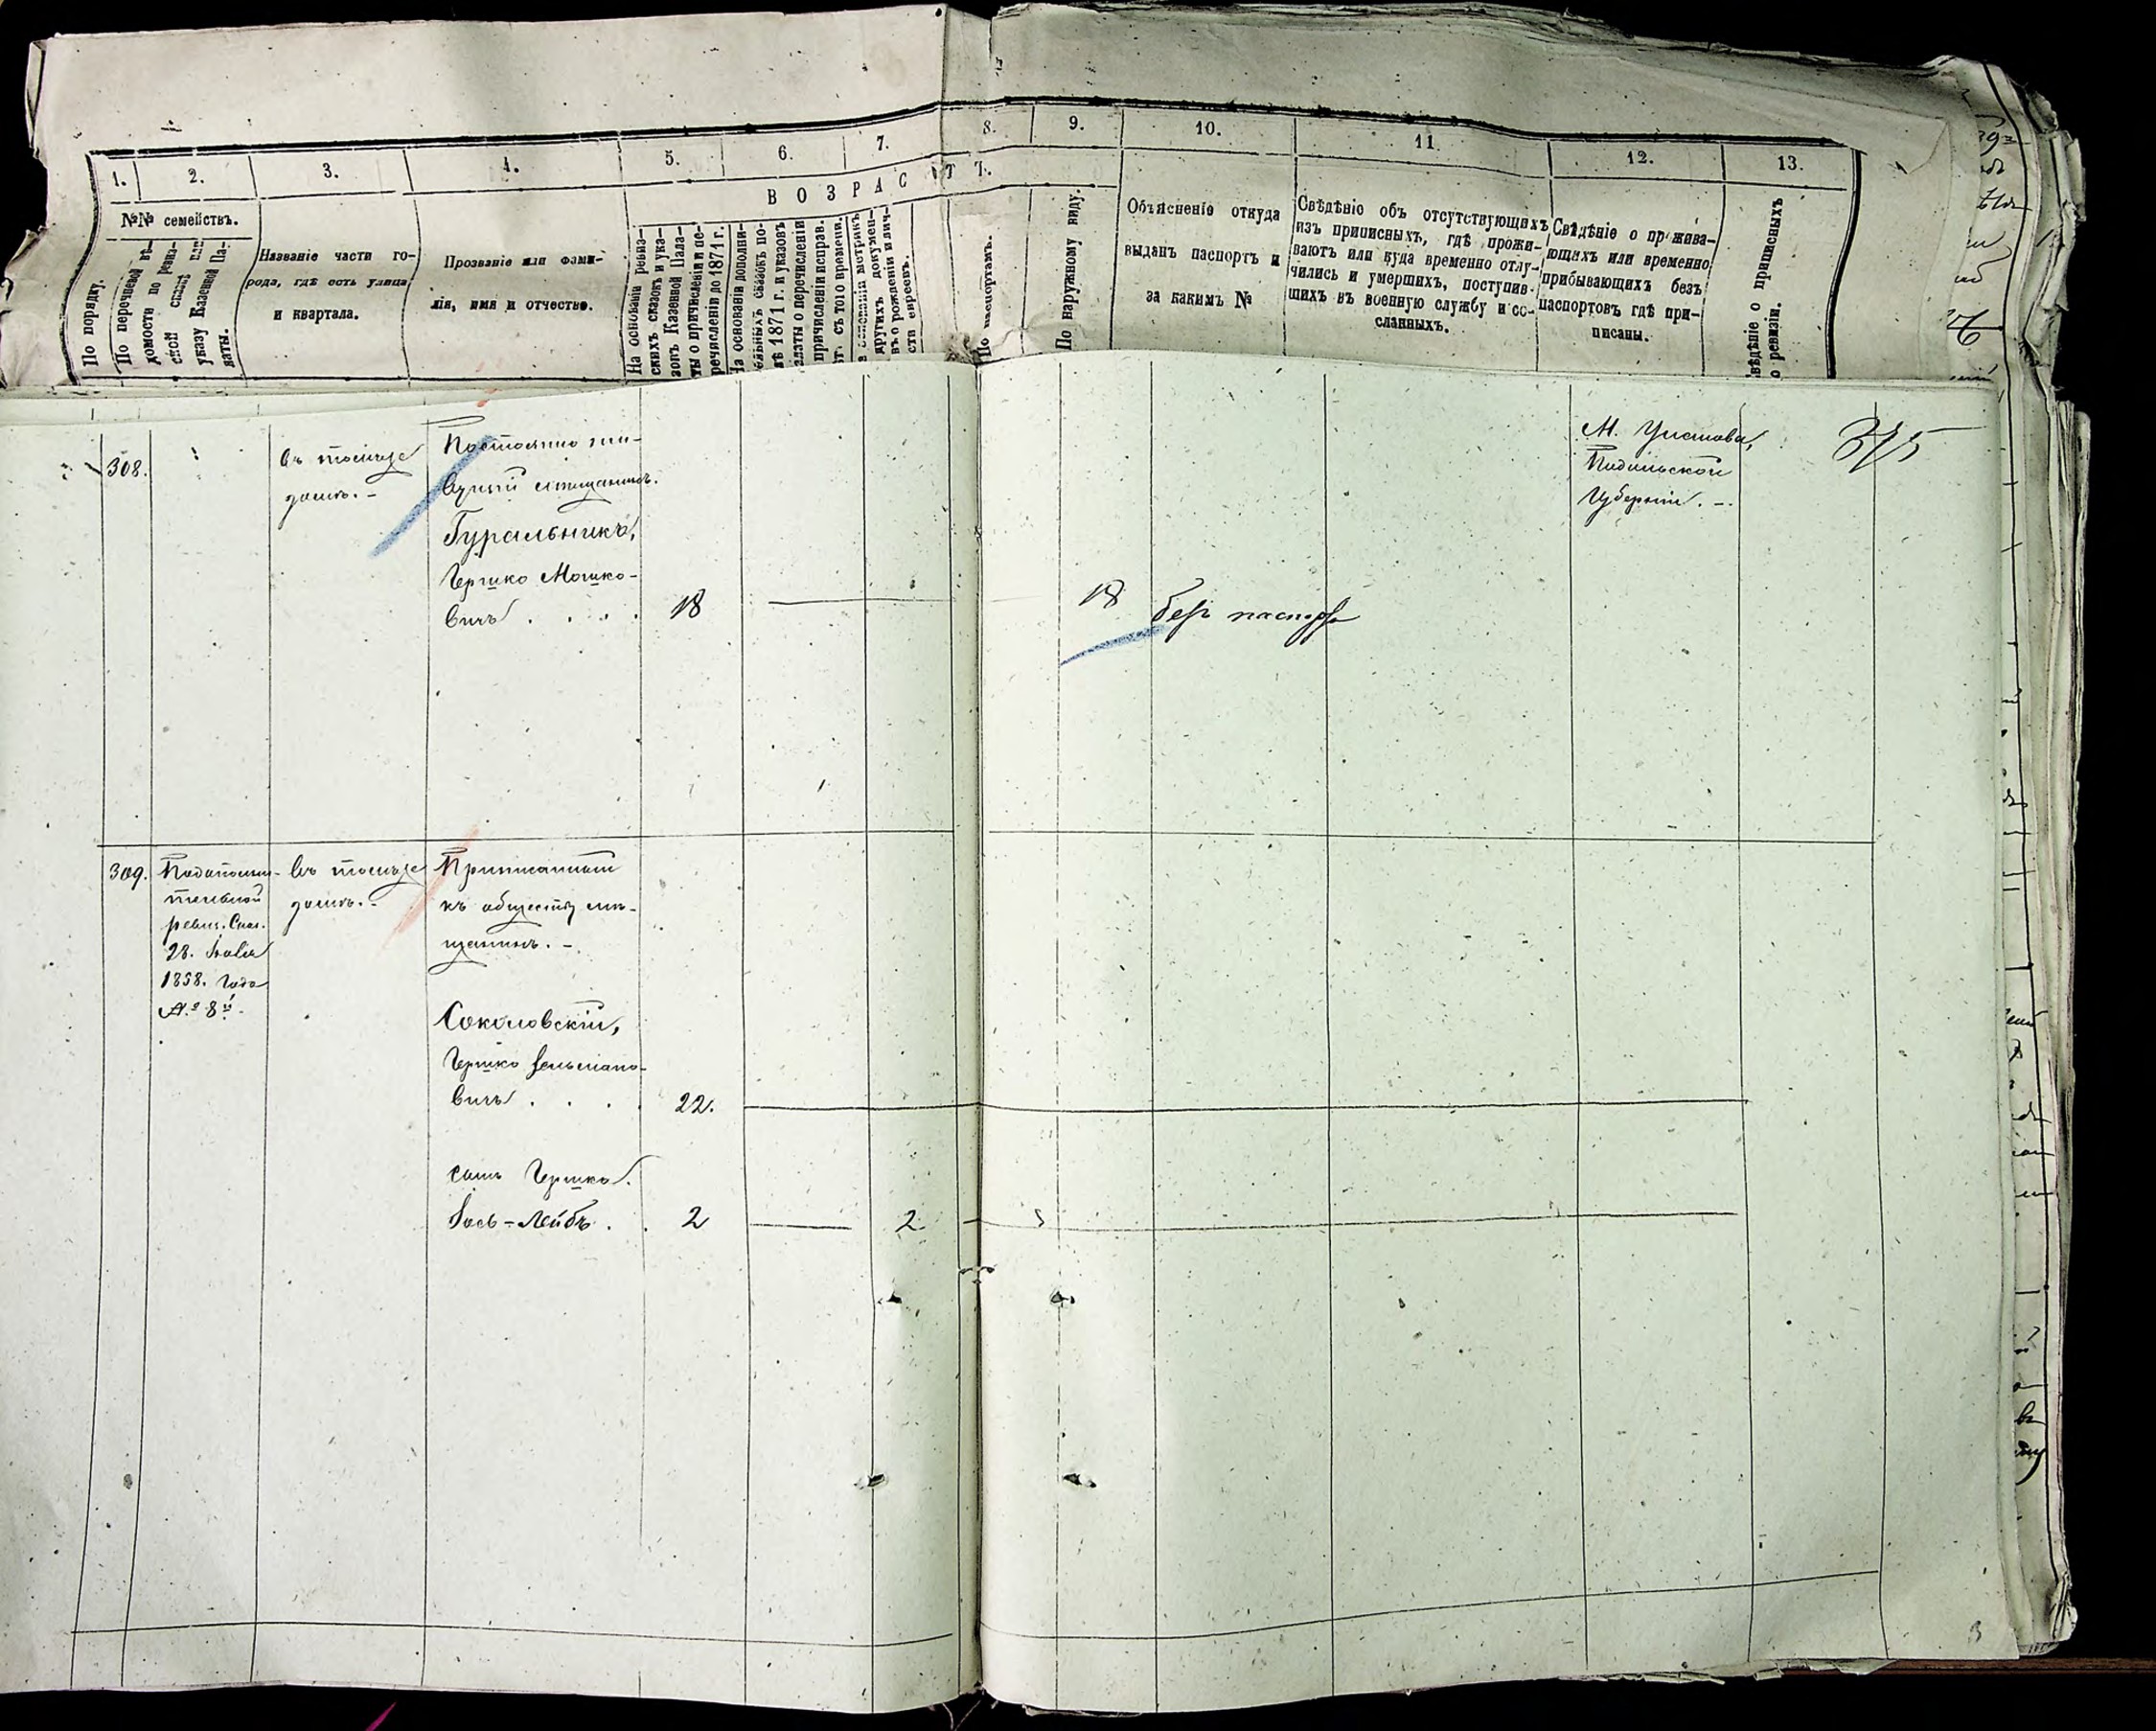 1.
2.
3.
4.
5.
6.
7.
8.
9.
10.
11.
12.
13.
№№ семействъ.
В О З Р А С Т Ъ.
По порядку.
По перечневой вѣ-
домости по реви-
ской сказкѣ или
указу Казенной Па-
латы.
Названіе части го-
рода, гдѣ есть улица
и квартала.
Прозваніе или фами-
лія, имя и отчество.
На основаніи ревиз-
скихъ сказокъ и ука-
зовъ Казенной Пала-
ты о причисленіи и пе-
речисленіи до 1871 г.
На основаніи дополни-
тельныхъ сказокъ по-
слѣ 1871 г. и указовъ
палаты о перечисленіи
причисленіи исправ.
съ того времени.
основаніи метрикъ
другихъ докумен-
въ о рожденіи и лич-
сти евреевъ.
По паспортамъ.
По наружному виду.
Объясненіе откуда
выданъ паспортъ и
за какимъ №
Свѣдѣніе объ отсутствующихъ
изъ приписныхъ, гдѣ прожи-
ваютъ или куда временно отлу-
чились и умершихъ, поступив-
шихъ въ военную службу и со-
сланныхъ.
Свѣдѣніе о прожива-
ющихъ или временно
прибывающихъ безъ
паспортовъ гдѣ при-
писаны.
Свѣдѣніе о приписныхъ
по ревизіи.
308.
въ томъже
домѣ. -
Постоянно жи-
вущій мѣщанинъ.
Гуральникъ,
Гершко Мошко-
вичъ . . . .
18
18
безъ паспорта
М.
Подольской
Губерніи. -.
375
309.
Дополни-
тельной
ревиз. Сказ.
28. Іюля
1858. Года
№ 8й.
въ томъже
домѣ. -
Приписанный
къ обществу мѣ-
щанинъ. -
Соколовскій,
Гершко Зельмано-
вичъ . . . .
22.
сынъ Гершка.
Іось-Лейбъ . .
2
2
3